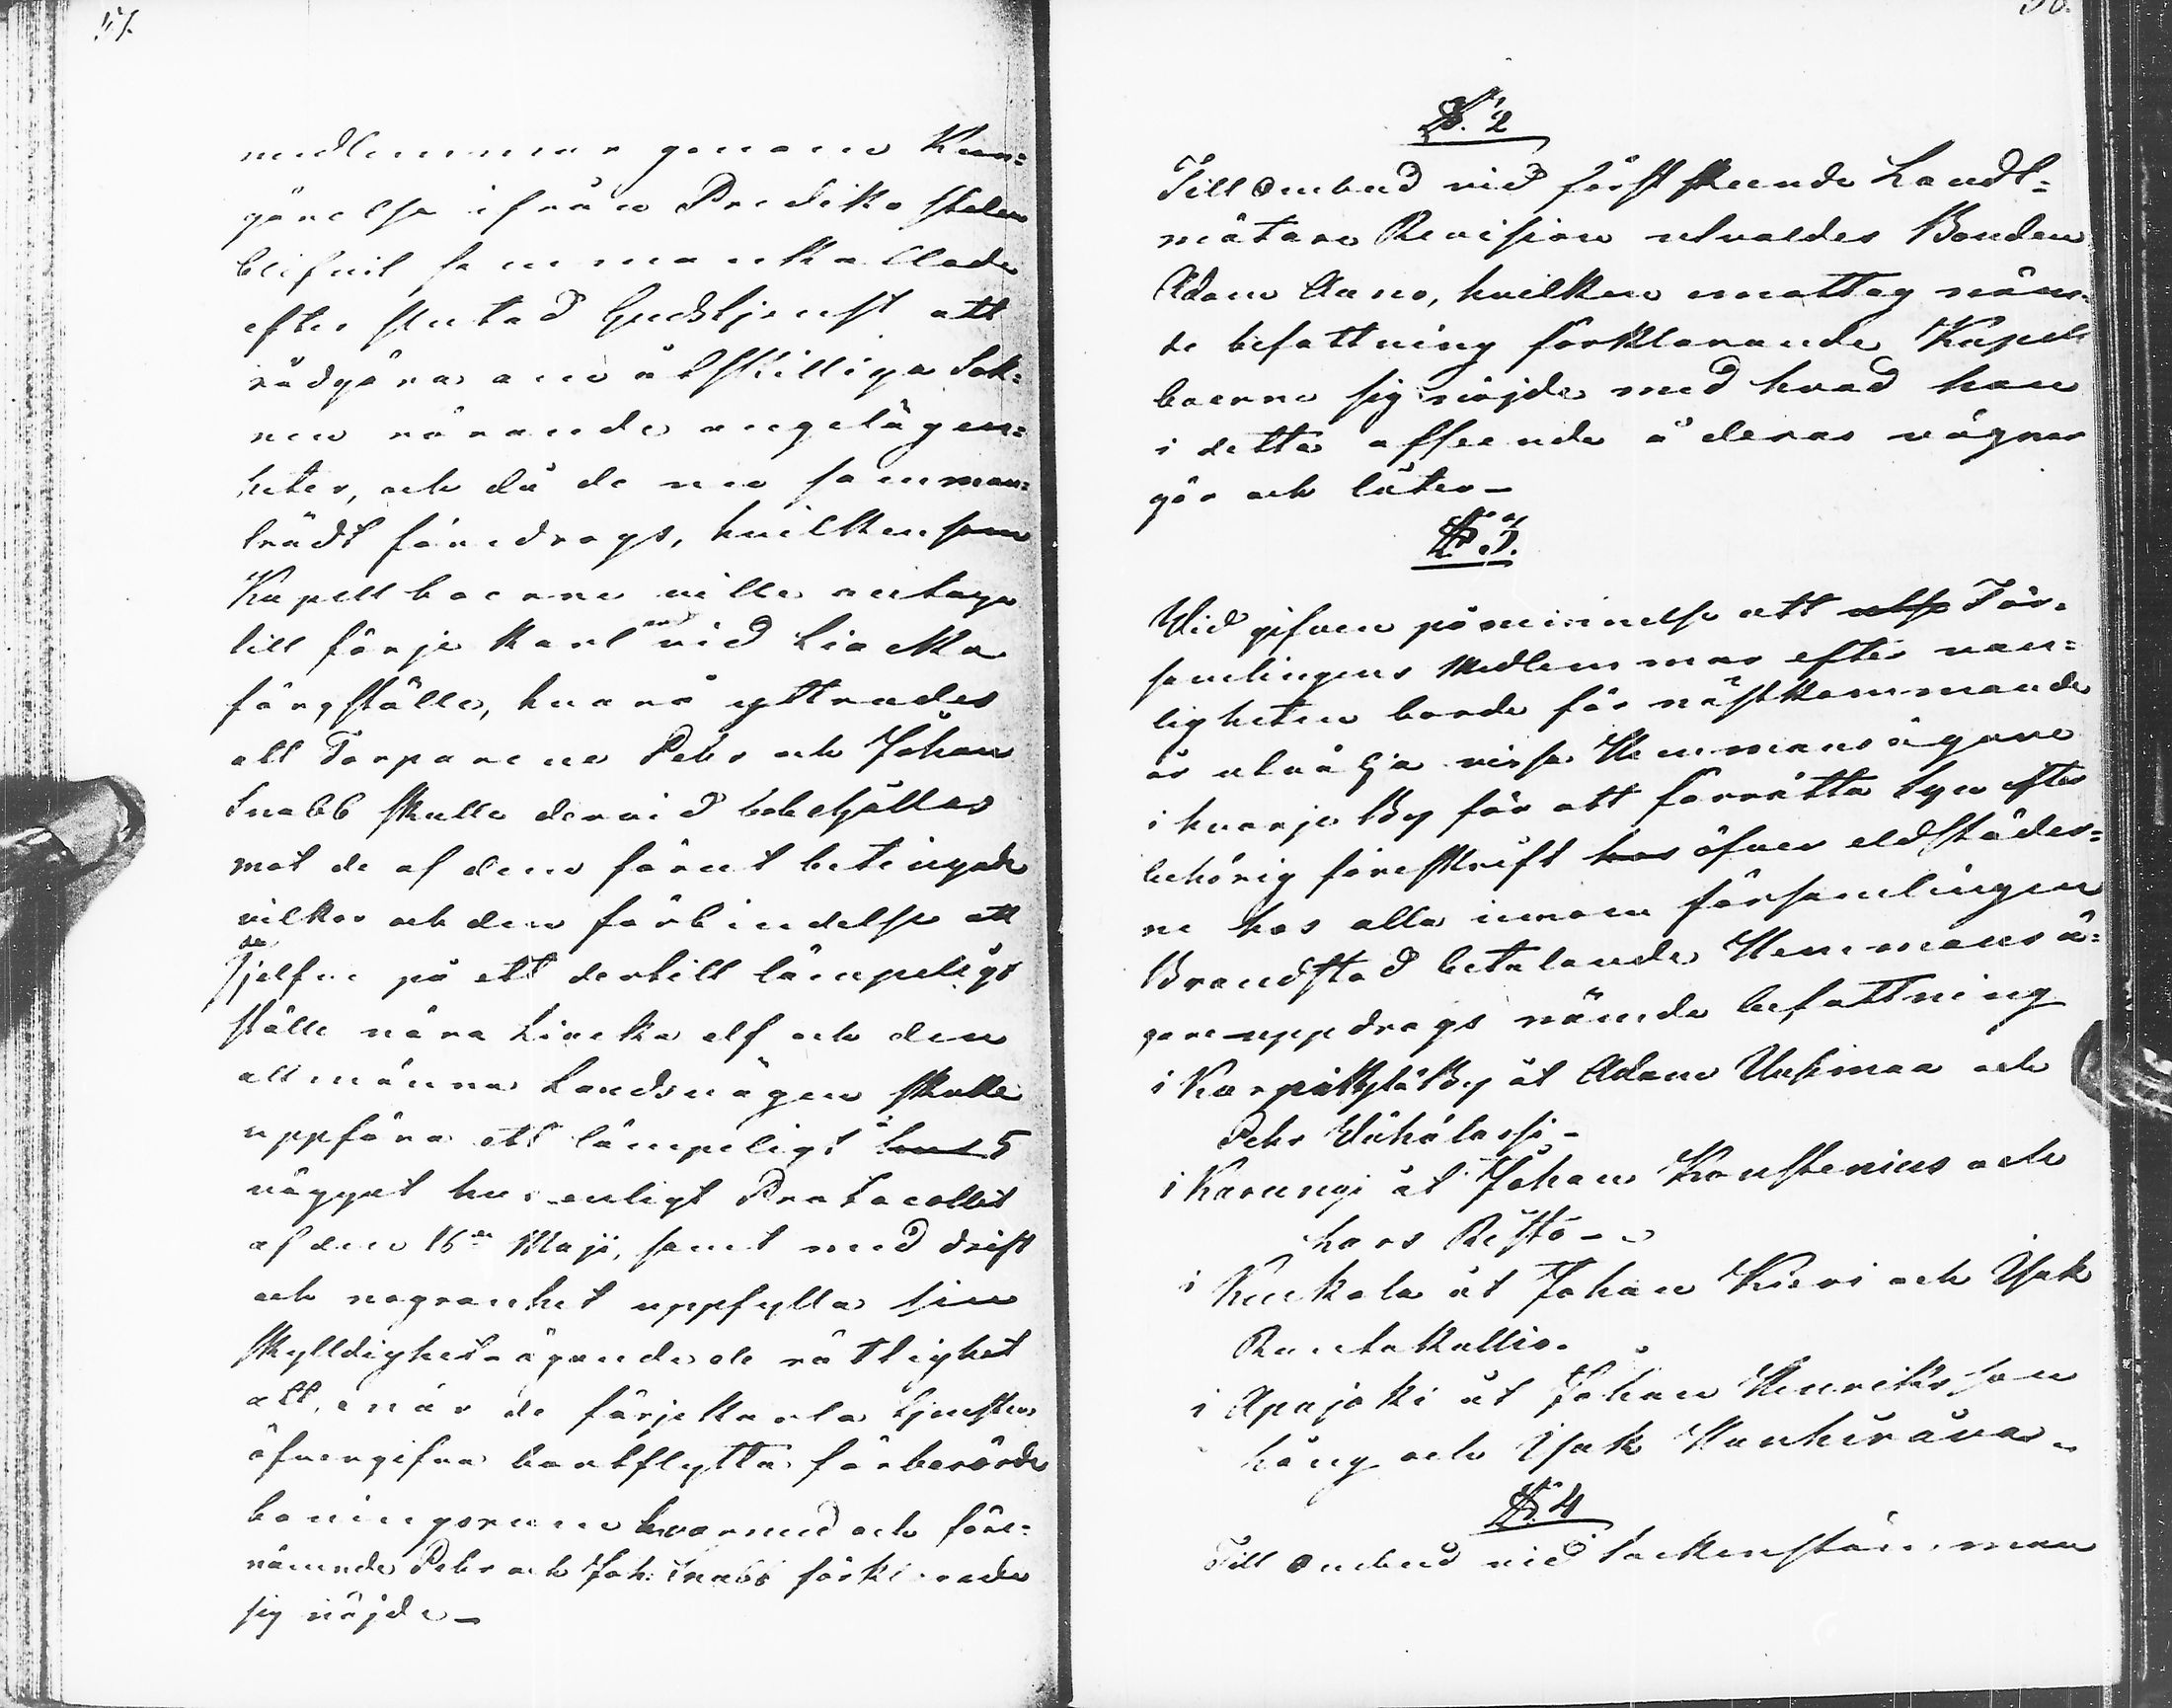 57.
medlemmar genom Kun=
görelse ifrån Prediko stolen
blifvit sammankallade
efter slutad Gudstjenst att
rådgöra om åtskilliga Sok=
nen rörande angelägen=
heter, och då de nu samman=
trädt föredrogs, hvilken som
Kapellboerne ville antaga
till färje karl vid Liakka
färgställe, hvarå yttrades
att Torparene Pehr och Johan
Snabb skulle dervid bibehållas
mot de af dem förut betingade
vilkor och den förbindelse att
de
sjelfve på ett dertill lämpeligt
ställe nära Liacka elf och den
allmänna Landsvägen skulle
uppföra ett lämpeligt hus 5
någget hus enligt Protocollet
af den 16de Maji, samt med drift
och nogranhet uppfylla sin
skylldighet ägande de rättighet
att, enär de färjekarls tjensten
öfvergifva bortflytta förberörde
boningsrum hvarmed och före=
nämnde Pehr och Joh: Snabb förklarade
sig nöjde —
§. 2
Till Ombud vid först skeende Landt=
mätare Revision utvaldes Bonden
Adam Auno, hvilken emottog näm=
de befattning förklarande Kapell
boerne sig nöjde med hvad han
i detta afseende å deras vägnar
gör och låter —
§ 3.
Vid gifven påminnelse att För=
samlingens Medlemmar efter van=
ligheten borde för nästkommande
år utvälja visse Hemmansägare
i hvarje By för att förrätta syn efter
behörig föreskrift hos öfver eldstäder=
ne hos alla innom församlingen
Brandstod betalande Hemmansä=
gare uppdrogs nämde befattning
i Korpikylä By åt Adam Uusimaa och
Pehr Vähälassi —
i Karungi åt Johan Konstenius och
Lars Ristö —
i Kukkola åt Johan Kieri och Isak
Rantakallio.
i Vojakkala åt Johan Henriksson
Häng och Isak Hankivaara.
§ 4
Till Ombud vid Sockenstämman